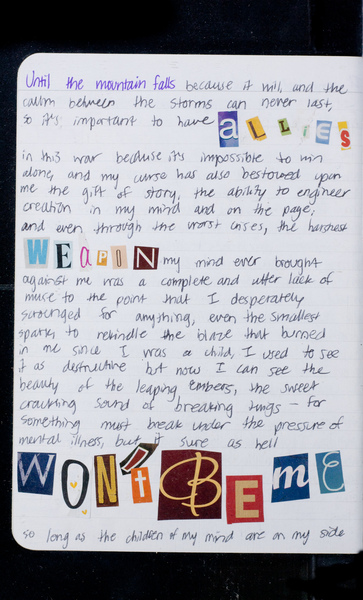 Until the mountain falls because it will, and the
calm between the storms can never last,
so it's important to have ALLIES
in this war because it's impossible to win
alone, and my curse has also bestowed upon
me the gift of story, the ability to engineer
creation in my mind and on the page;
and even through the worst crises, the harshest
WEAPON my mind ever brought
against me was a complete and utter lack of
muse to the point that I desperately
scrounged for anything, even the smallest
spark, to rekindle the blaze that burned
in me since I was a child, I used to see
it as destructive but now I can see the
beauty of the leaping embers, the sweet
crackling sound of breaking twigs - for
something must break under the pressure of
mental illness, but it sure as hell
WON't BE mE
so long as the children of my mind are on my side